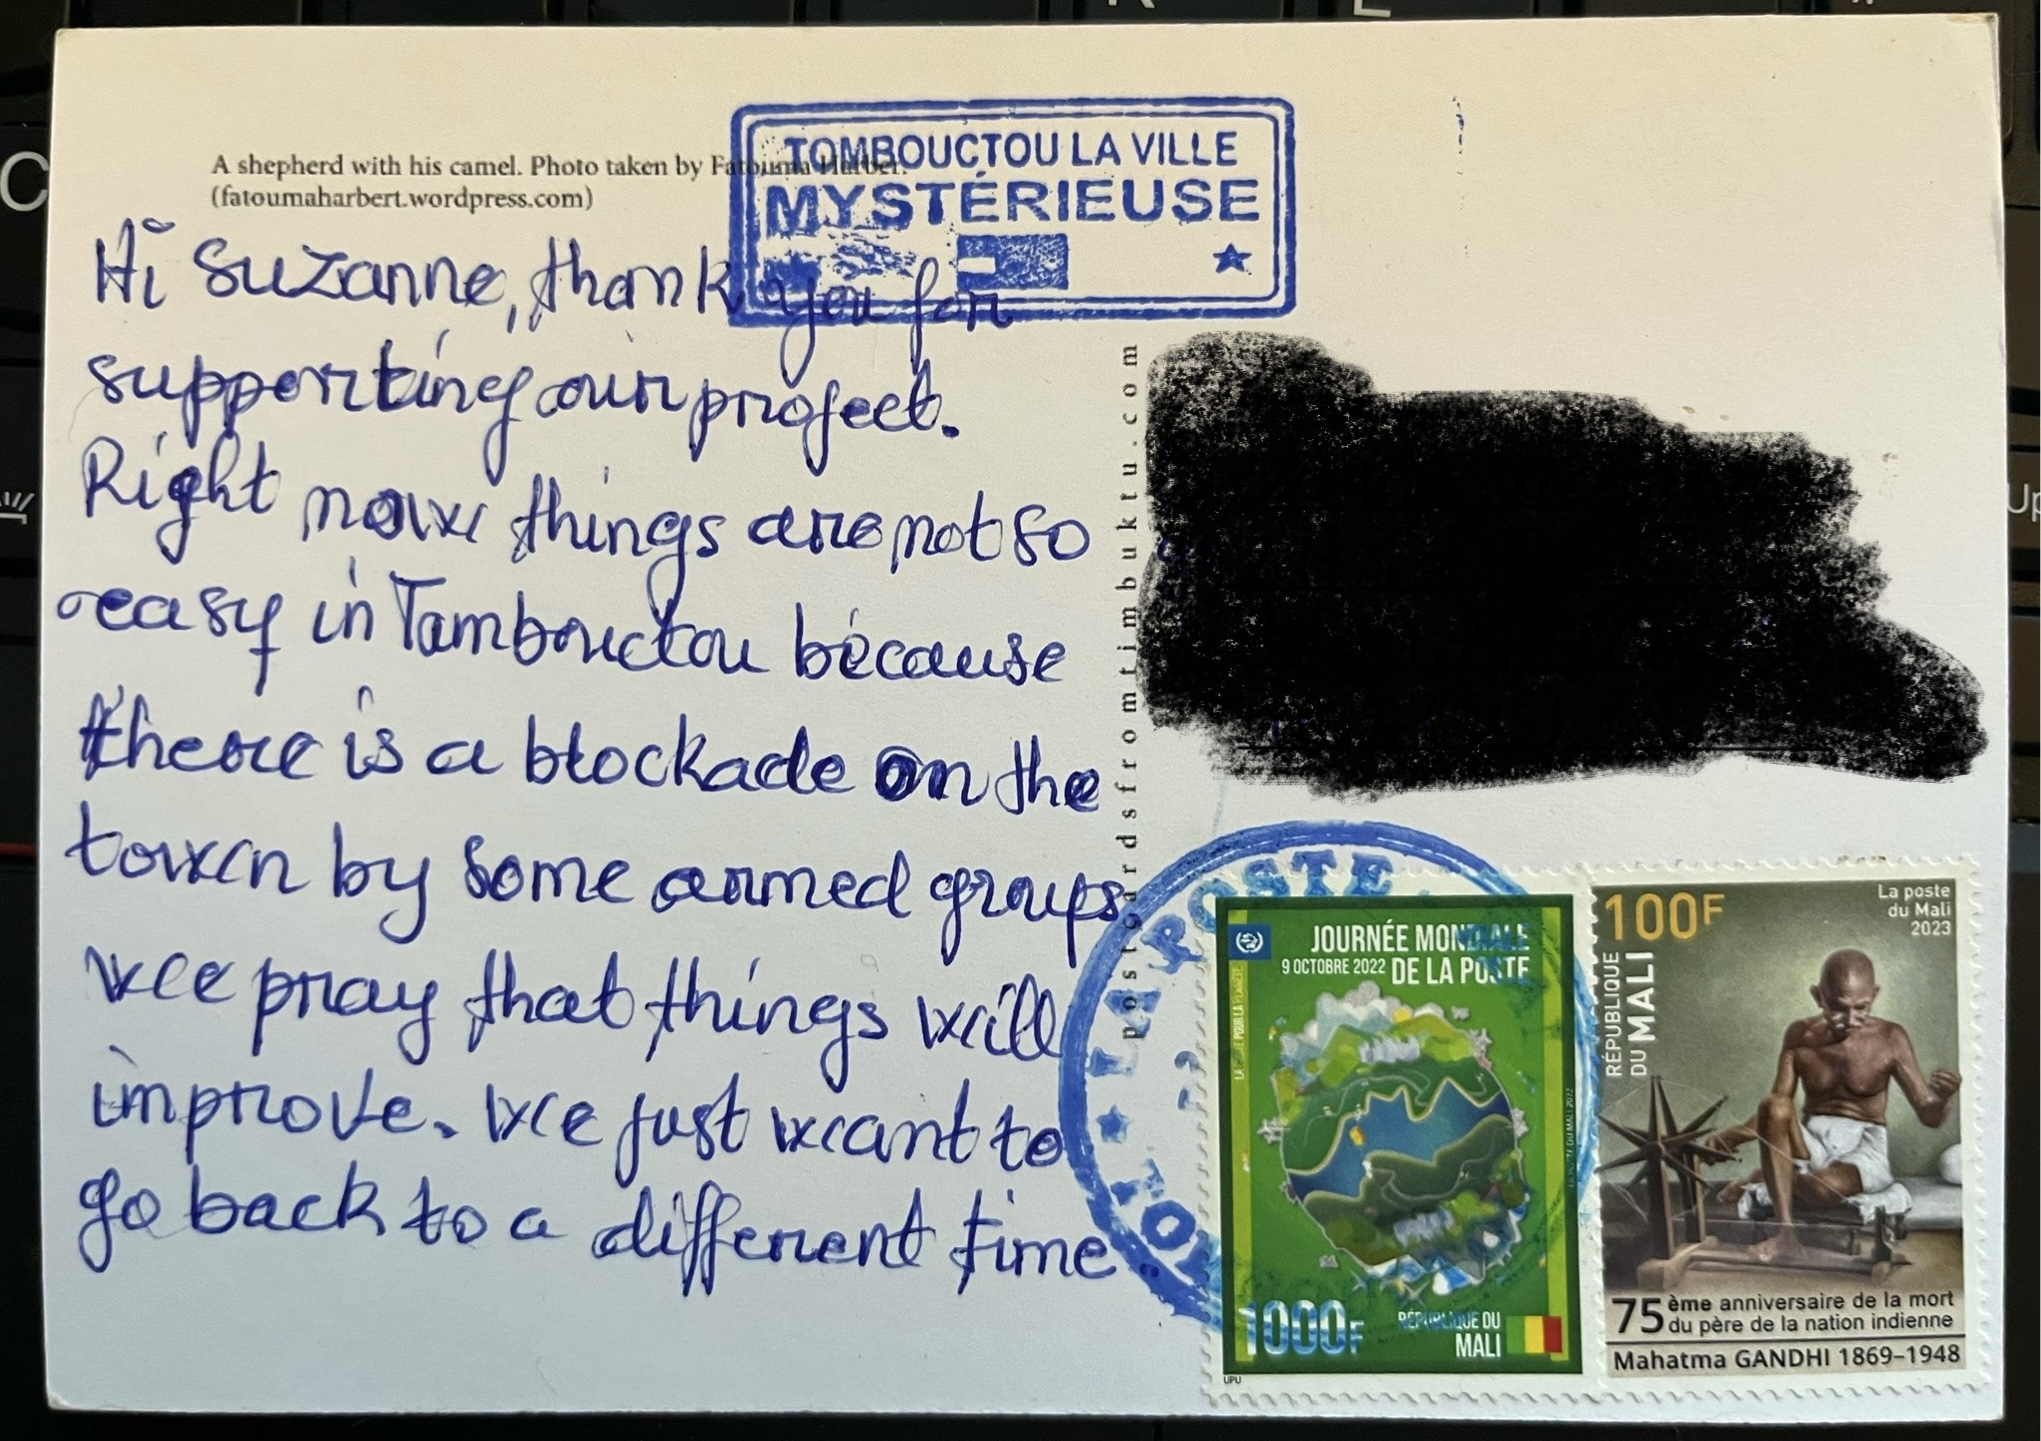 A shepherd with his camel. Photo taken by Fatouma Harber.
(fatoumaharbert.wordpress.com)
TOMBOUCTOU LA VILLE
MYSTÉRIEUSE
Hi Suzanne, thank you for
supporting our project.
Right now things are not so
easy in Tambouctou because
there is a blockade on the
town by some armed groups
we pray that things will
improve. we just want to
go back to a different time.
postcardsfromtimbuktu.com
LA POSTE
JOURNÉE MONDIALE
9 OCTOBRE 2022 DE LA POSTE
1000F
RÉPUBLIQUE DU
MALI
UPU
100F
La poste
du Mali
2023
RÉPUBLIQUE
DU MALI
75ème anniversaire de la mort
du père de la nation indienne
Mahatma GANDHI 1869–1948